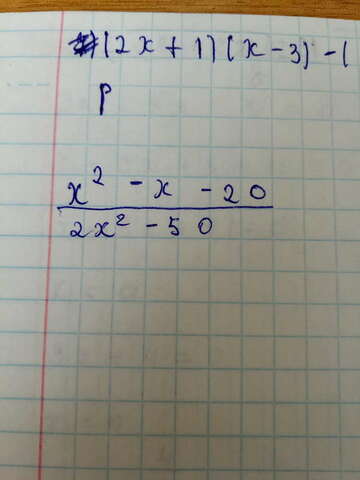 (2x + 1)(x - 3) - (
p
x² - x - 20
2x² - 50